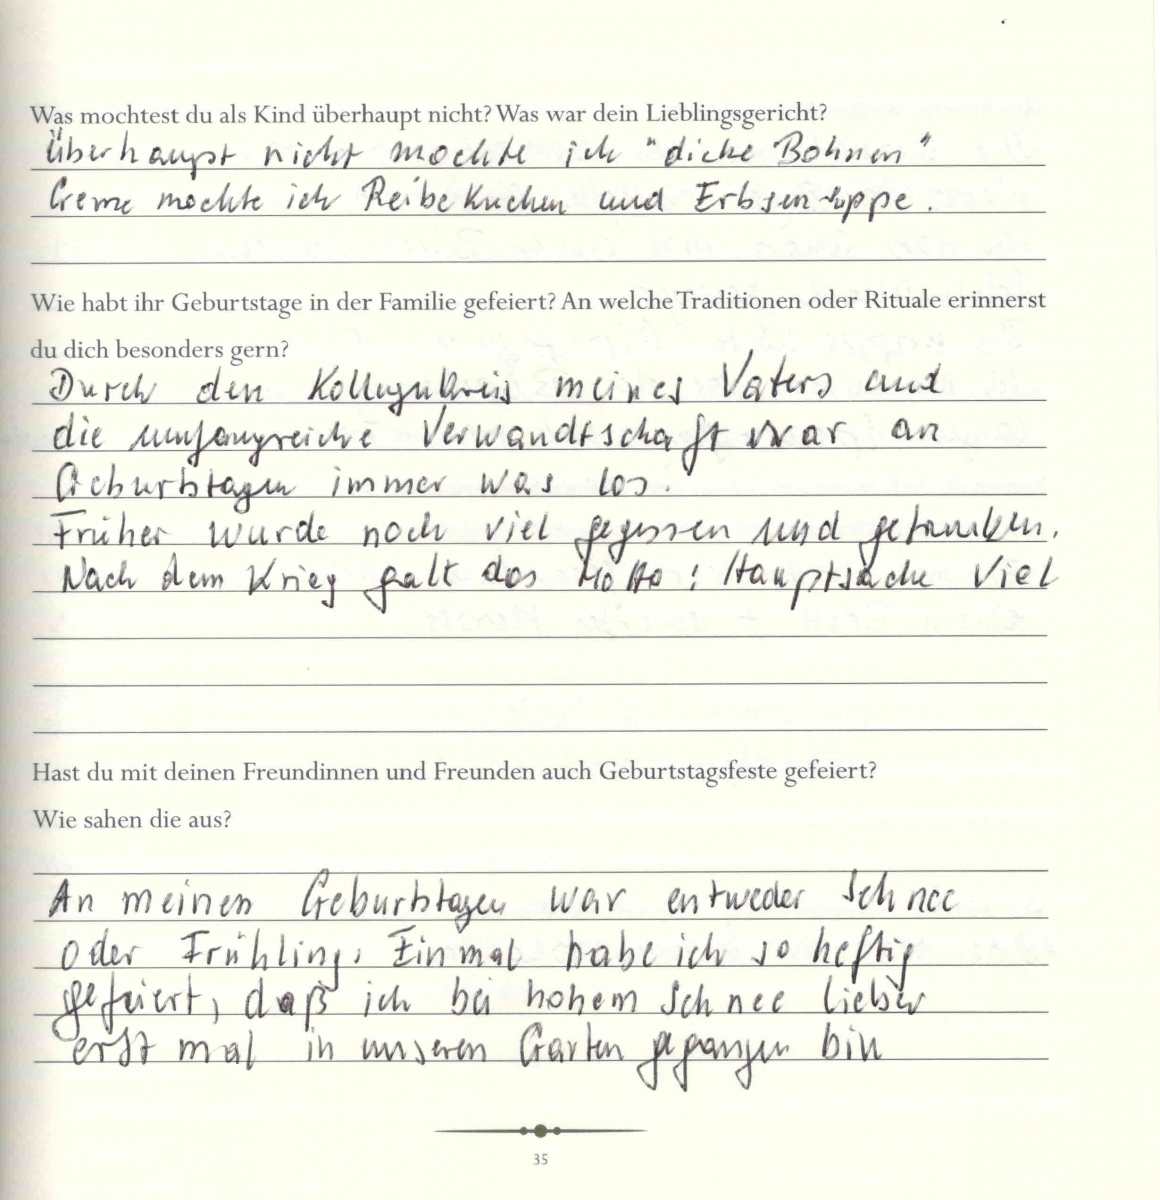 Was mochtest du als Kind überhaupt nicht? Was war dein Lieblingsgericht?
Überhaupt nicht mochte ich "dicke Bohnen"
Gerne mochte ich Reibekuchen und Erbsensuppe.
Wie habt ihr Geburtstage in der Familie gefeiert? An welche Traditionen oder Rituale erinnerst
du dich besonders gern?
Durch den Kollegenkreis meines Vaters und
die umfangreiche Verwandtschaft war an
Geburtstagen immer was los.
Früher wurde noch viel gegessen und getrunken.
Nach dem Krieg galt das Motto: Hauptsache viel
Hast du mit deinen Freundinnen und Freunden auch Geburtstagsfeste gefeiert?
Wie sahen die aus?
An meinen Geburtstagen war entweder Schnee
oder Frühling. Einmal habe ich so heftig
gefeiert, daß ich bei hohem Schnee lieber
erst mal in unseren Garten gegangen bin
35